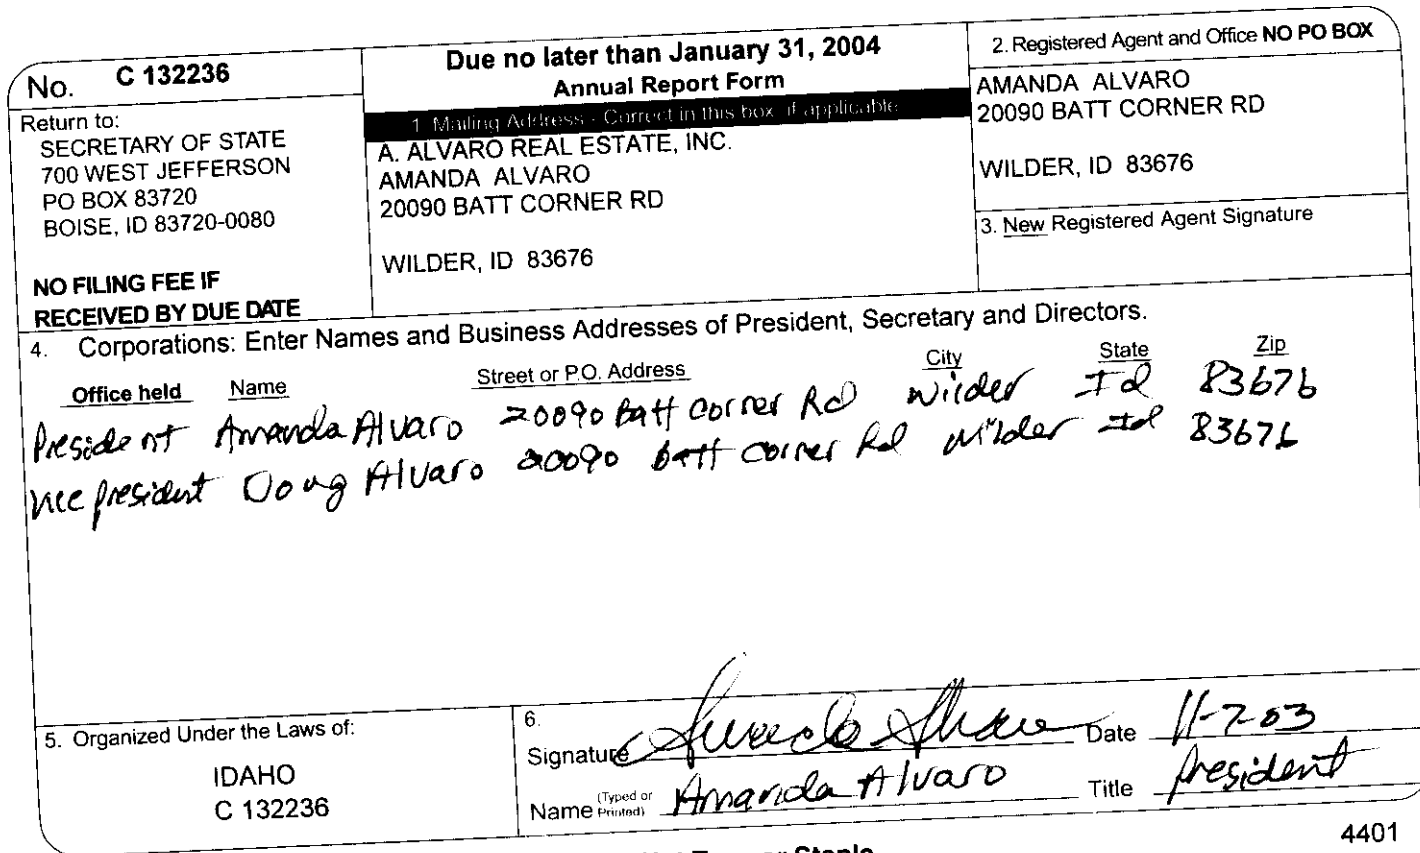 No. C 132236
Return to:
SECRETARY OF STATE
700 WEST JEFFERSON
PO BOX 83720
BOISE, ID 83720-0080
NO FILING FEE IF
RECEIVED BY DUE DATE
Due no later than January 31, 2004
Annual Report Form
1. Mailing Address - Correct in this box, if applicable
A. ALVARO REAL ESTATE, INC.
AMANDA ALVARO
20090 BATT CORNER RD
WILDER, ID 83676
2. Registered Agent and Office NO PO BOX
AMANDA ALVARO
20090 BATT CORNER RD
WILDER, ID 83676
3. New Registered Agent Signature
4. Corporations: Enter Names and Business Addresses of President, Secretary and Directors.
Office held Name Street or P.O. Address City State Zip
President Amanda Alvaro 20090 Batt Corner Rd Wilder Id 83676
Vice president Doug Alvaro 20090 batt corner Rd Wilder Id 83676
5. Organized Under the Laws of:
IDAHO
C 132236
6.
Signature Date 11-7-03
Name (Typed or Printed) Amanda Alvaro Title president
4401